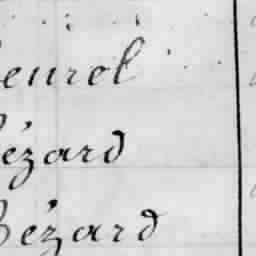 eurel
ézard
Bézard